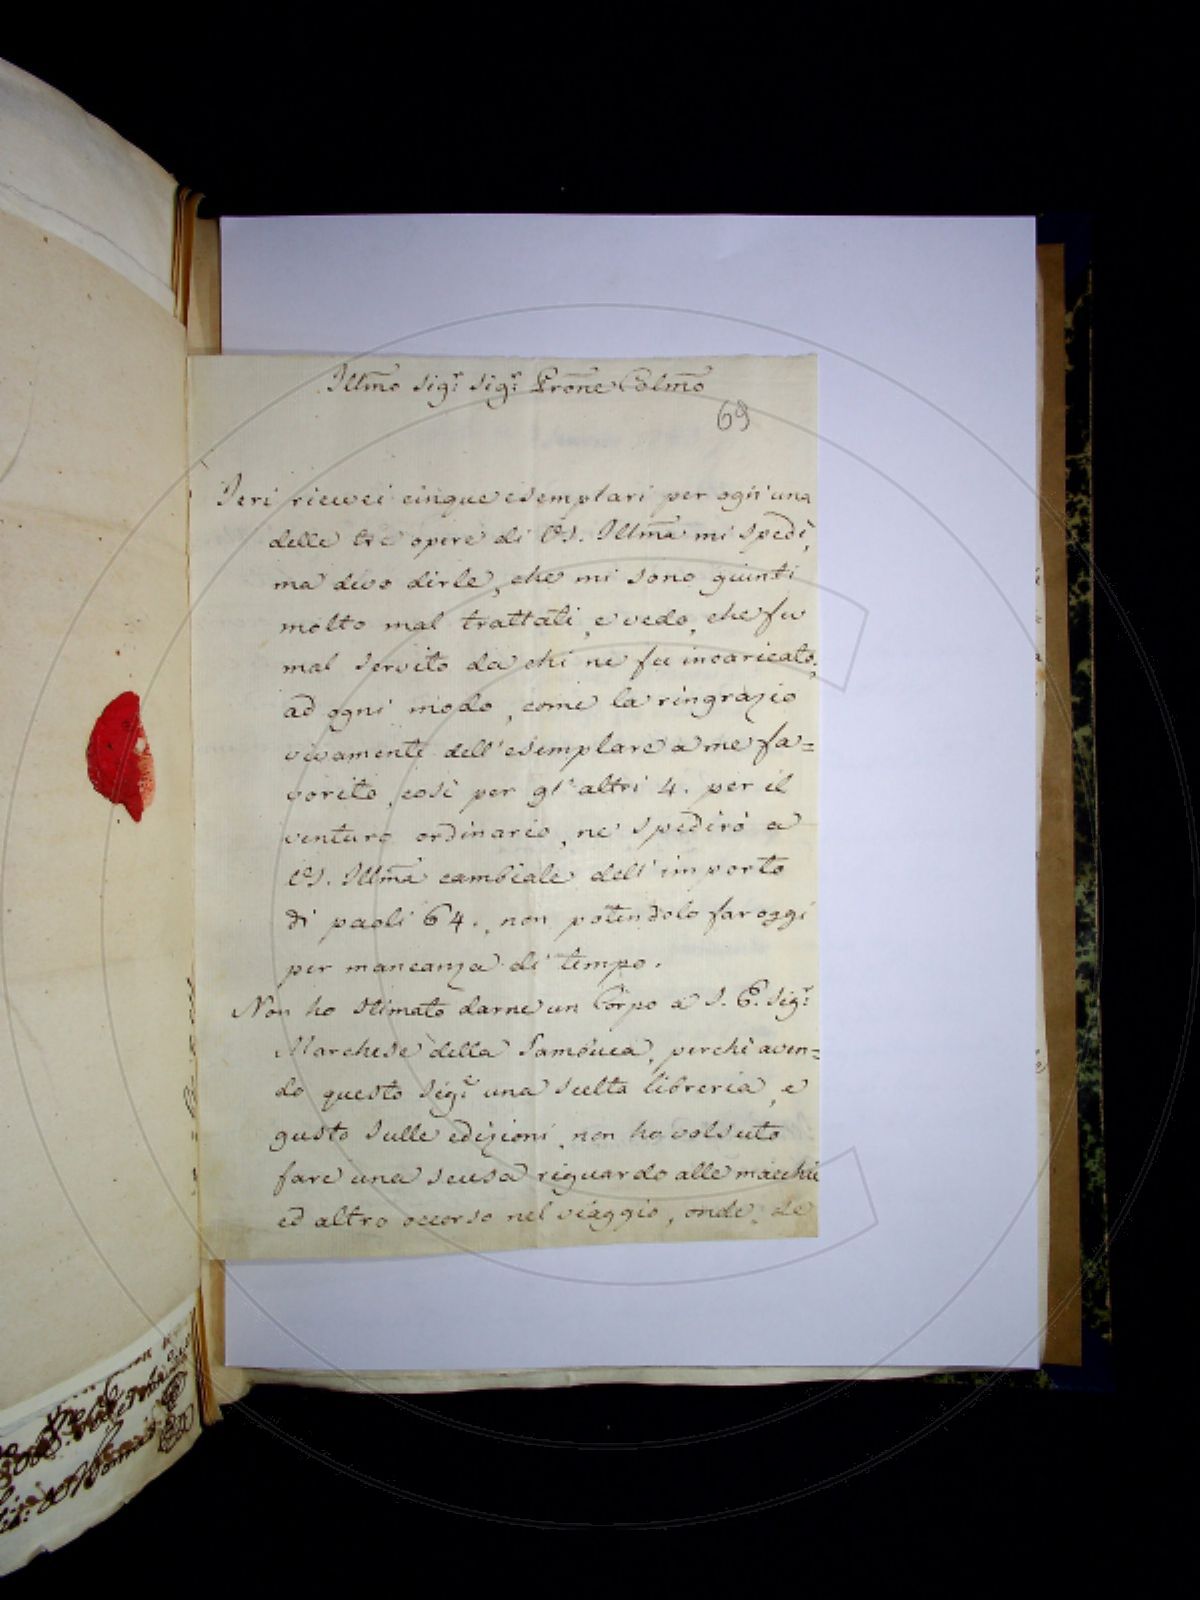 Illmo Sigr. Sigr. Prone Colmo
69
Ieri ricevei cinque esemplari per ogn'una
delle tre opere di VS. Illma mi spedì,
ma devo dirle, che mi sono giunti
molto mal trattati, e vedo, che fu
mal servito da chi ne fu incaricato,
ad ogni modo, come la ringrazio
vivamente dell'esemplare a me fa=
vorito, così per gl'altri 4. per il
venturo ordinario, ne spedirò a
VS. Illma cambiale dell'importo
di paoli 64., non potendolo far oggi
per mancanza di tempo.
Non ho stimato darne un Corpo a S. E. Sigr.
Marchese della Sambuca, perchè aven=
do questo Sigre una scelta libreria, e
gusto sulle edizioni, non ho volsuto
fare una scusa riguardo alle macchie
ed altro occorso nel viaggio, onde, se